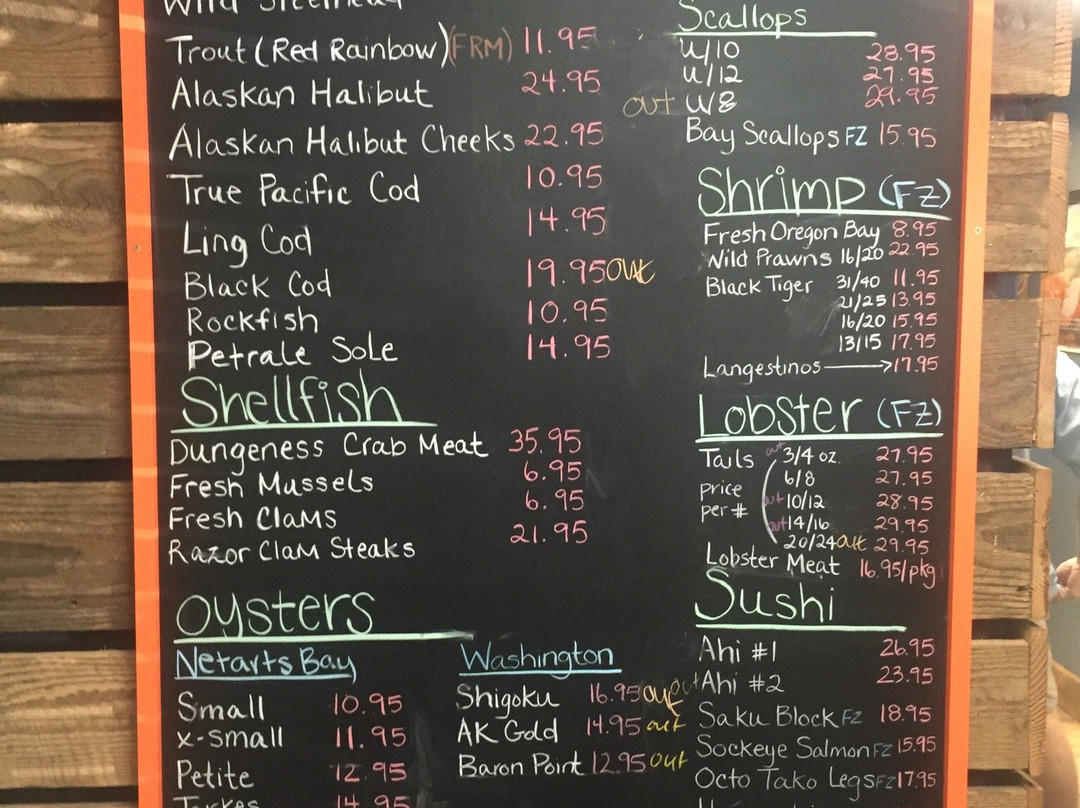 Wild Steelhead
Trout (Red Rainbow) (FRM) 11.95
Alaskan Halibut 24.95
Alaskan Halibut Cheeks 22.95
True Pacific Cod 10.95
Ling Cod 14.95
Black Cod 19.95 out
Rockfish 10.95
Petrale Sole 14.95
Shellfish
Dungeness Crab Meat 35.95
Fresh Mussels 6.95
Fresh Clams 6.95
Razor Clam Steaks 21.95
Oysters
Netarts Bay
Small 10.95
x-small 11.95
Petite 12.95
14.95
Washington
Shigoku 16.95 out
AK Gold 14.95 out
Baron Point 12.95 out
Scallops
U/10 28.95
U/12 27.95
out U/8 29.95
Bay Scallops FZ 15.95
Shrimp (FZ)
Fresh Oregon Bay 8.95
Wild Prawns 16/20 22.95
Black Tiger 31/40 11.95
21/25 13.95
16/20 15.95
13/15 17.95
Langestinos 17.95
Lobster (FZ)
Tails out 3/4 oz. 27.95
6/8 27.95
price per # out 10/12 28.95
out 14/16 29.95
20/24 out 29.95
Lobster Meat 16.95/pkg
Sushi
Ahi #1 26.95
out Ahi #2 23.95
Saku Block FZ 18.95
Sockeye Salmon FZ 15.95
Octo Tako Legs FZ 17.95